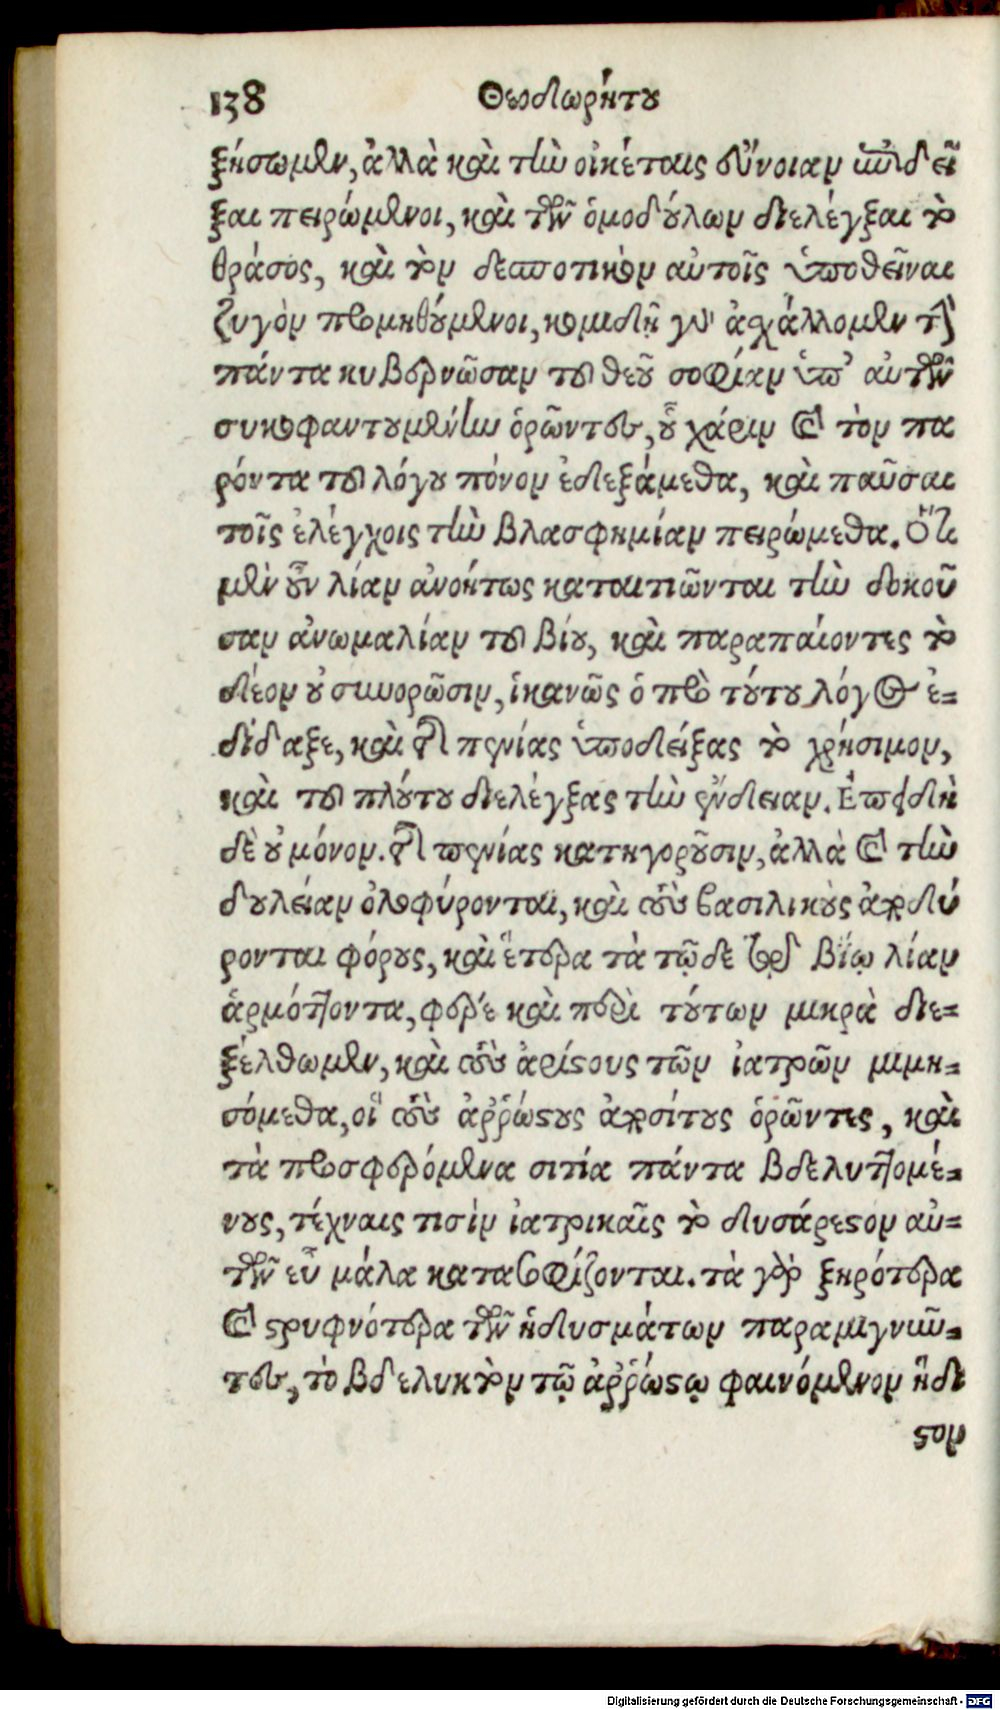 138 Θεοδωρήτου
ξήσωμεν, ἀλλὰ καὶ τὴν οἰκέταις εὔνοιαν ἐνδεῖ
ξαι πειρώμενοι, καὶ τῶν ὁμοδούλων διελέγξαι τὸ
θράσος, καὶ τὸν δεσποτικὸν αὐτοῖς ὑποθεῖναι
ζυγὸν προμηθούμενοι, κομιδῇ γὰρ ἀσχάλλομεν τὴν
πάντα κυβερνῶσαν τοῦ θεοῦ σοφίαν ὑπ' αὐτῶν
συκοφαντουμένην ὁρῶντες, οὗ χάριν καὶ τὸν πα
ρόντα τοῦ λόγου πόνον ἐδεξάμεθα, καὶ παῦσαι
τοῖς ἐλέγχοις τὴν βλασφημίαν πειρώμεθα. Ὅτι
μὲν οὖν λίαν ἀνοήτως καταιτιῶνται τὴν δοκοῦ
σαν ἀνωμαλίαν τοῦ βίου, καὶ παραπαίοντες τὸ
δέον οὐ συνορῶσιν, ἱκανῶς ὁ πρὸ τούτου λόγος ἐ-
δίδαξε, καὶ τῆς πενίας ὑποδείξας τὸ χρήσιμον,
καὶ τοῦ πλούτου διελέγξας τὴν ἔνδειαν. Ἐπειδὴ
δὲ οὐ μόνον. τῆς πενίας κατηγοροῦσιν, ἀλλὰ καὶ τὴν
δουλείαν ὀλοφύρονται, καὶ τοὺς βασιλικοὺς ἀποδύ
ρονται φόρους, καὶ ἕτερα τὰ τῷδε τῷ βίῳ λίαν
ἁρμόττοντα, φέρε καὶ περὶ τούτων μικρὰ διε-
ξέλθωμεν, καὶ τοὺς ἀρίστους τῶν ἰατρῶν μιμη-
σόμεθα, οἳ τοὺς ἀῤῥώστους ἀποσίτους ὁρῶντες, καὶ
τὰ προσφερόμενα σιτία πάντα βδελυττομέ-
νους, τέχναις τισὶν ἰατρικαῖς τὸ δυσάρεστον αὐ-
τῶν εὖ μάλα κατασοφίζονται. τὰ γὰρ ξηρότερα
καὶ στρυφνότερα τῶν ἡδυσμάτων παραμιγνῦν-
τες, τὸ βδελυκτὸν τῷ ἀῤῥώστῳ φαινόμενον ἥδι
στον
Digitalisierung gefördert durch die Deutsche Forschungsgemeinschaft - DFG